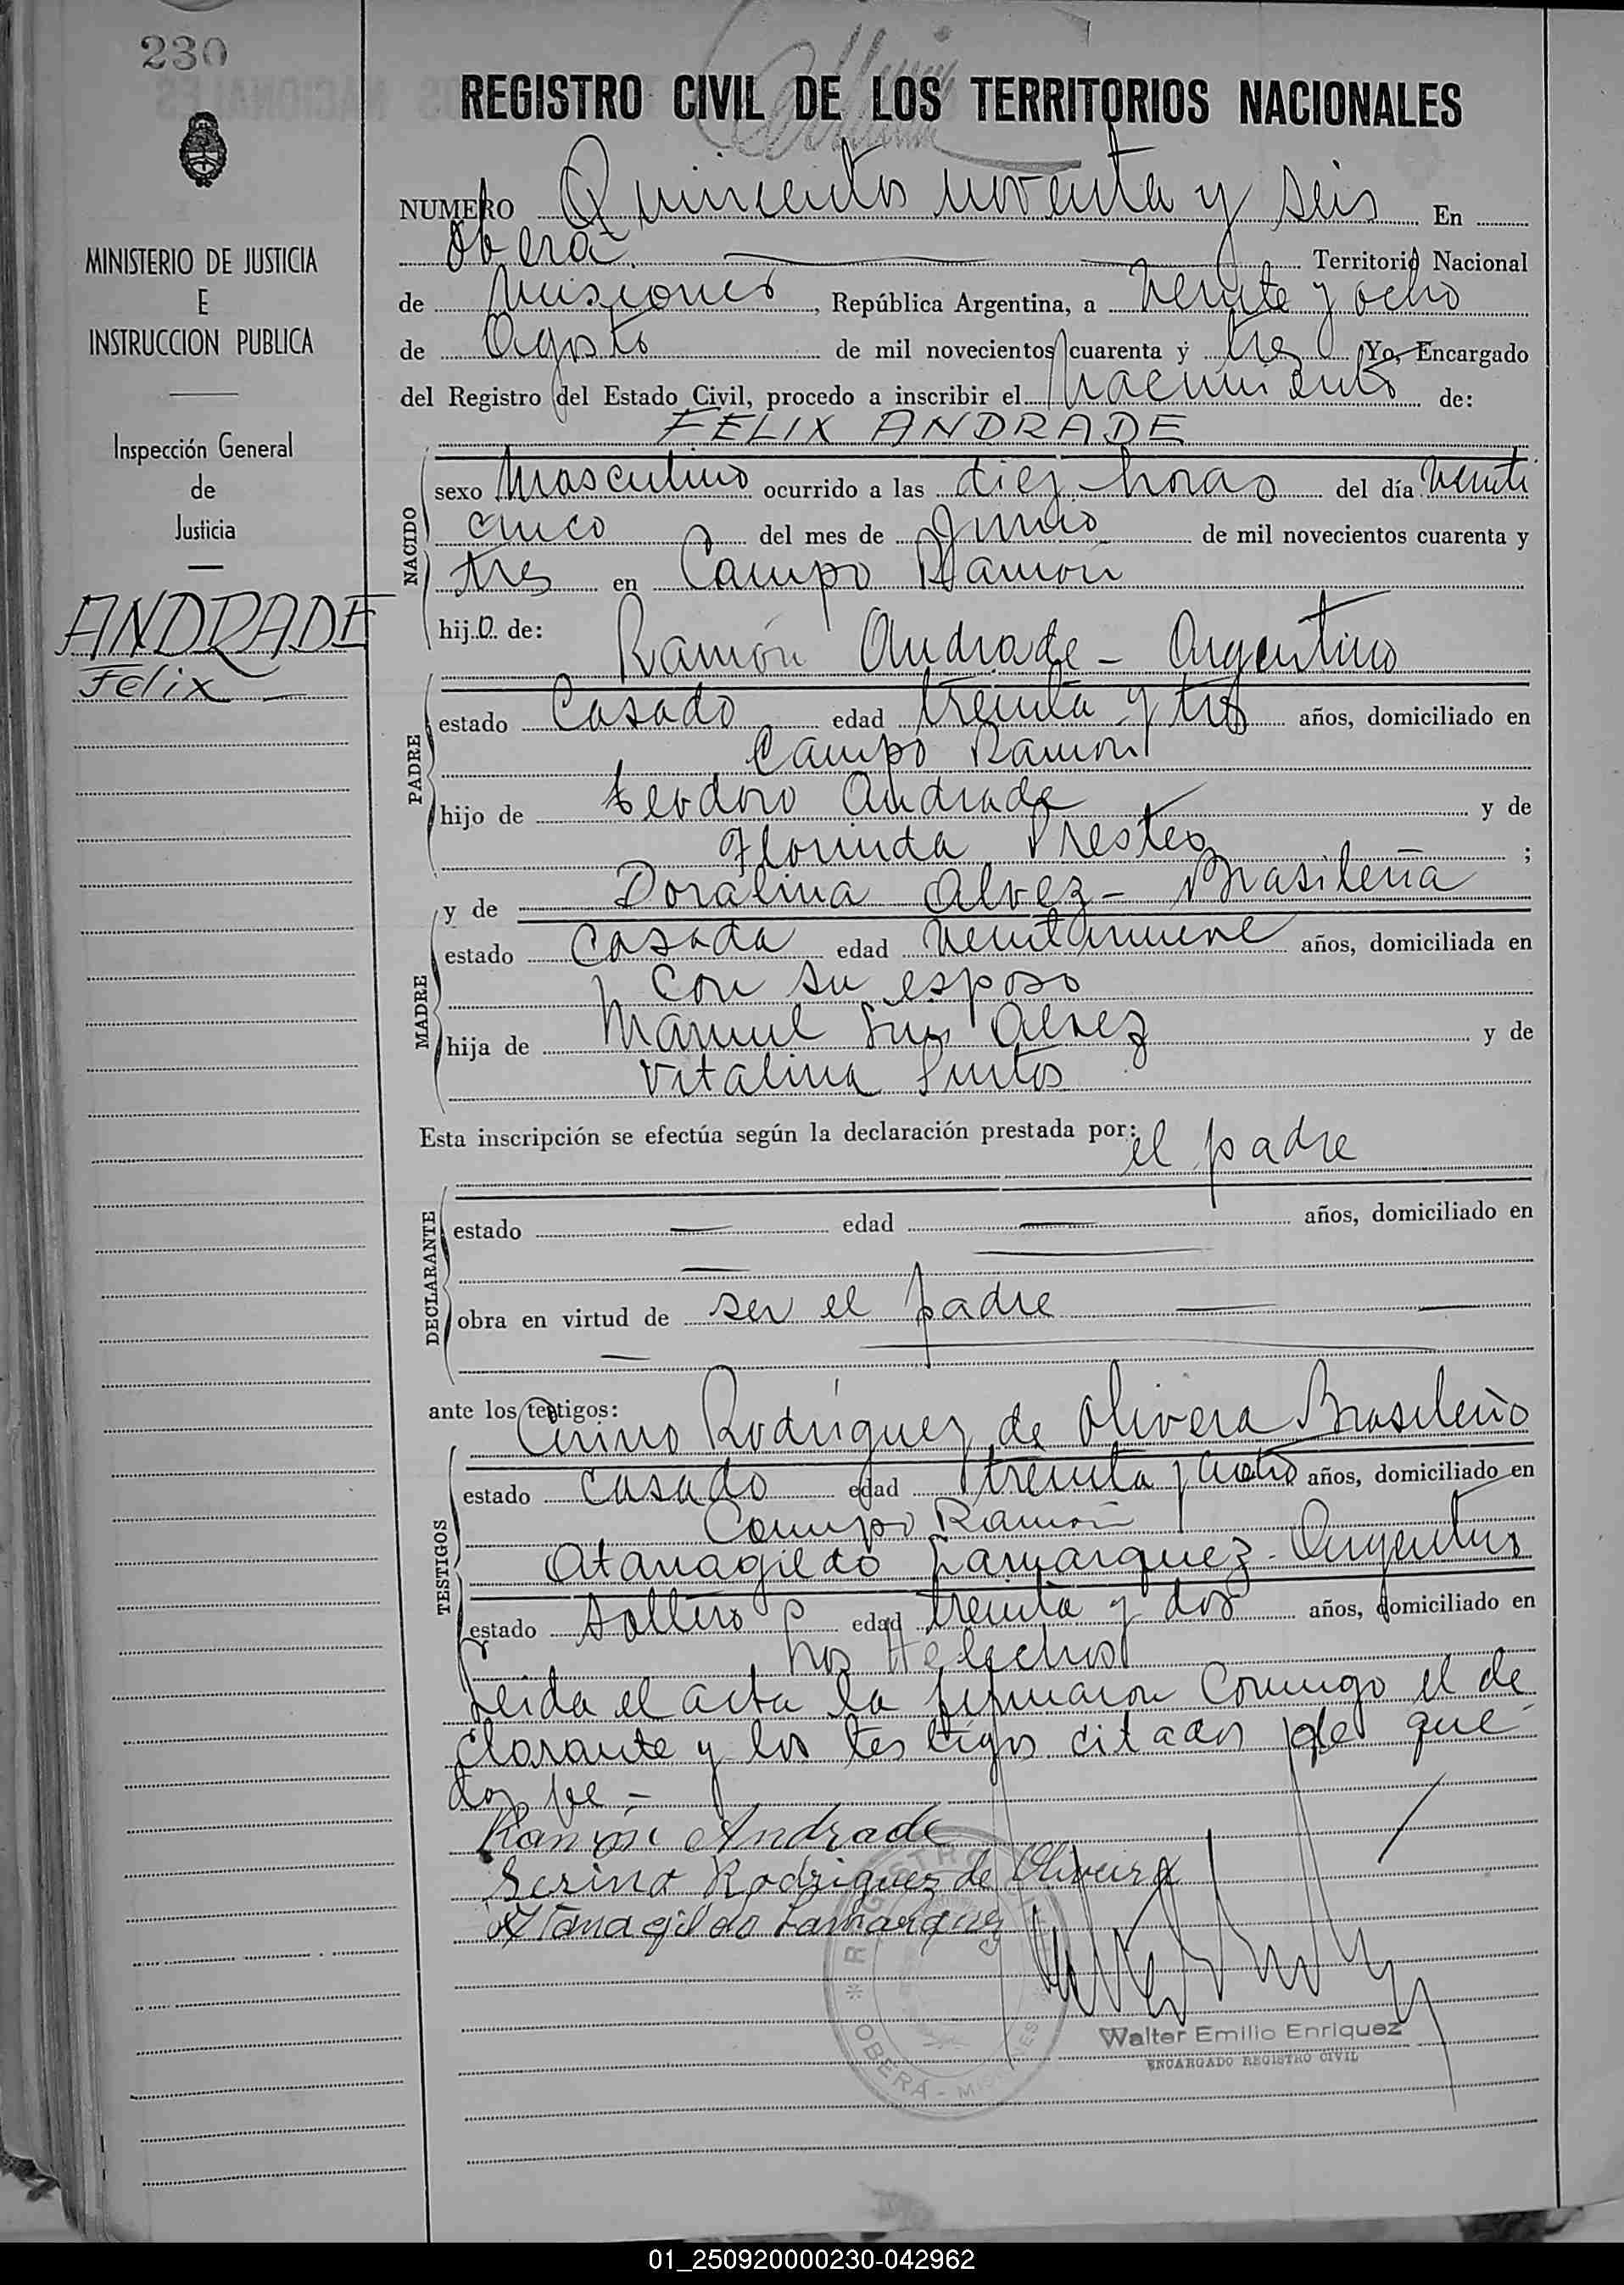 230
REGISTRO CIVIL DE LOS TERRITORIOS NACIONALES
MINISTERIO DE JUSTICIA
E
INSTRUCCION PUBLICA
Inspección General
de
Justicia
ANDRADE
Felix
NUMERO Quinientos noventa y seis En
Oberá Territorio Nacional
de Misiones, República Argentina, a veinte y ocho
de Agosto de mil novecientos cuarenta y tres Yo, Encargado
del Registro del Estado Civil, procedo a inscribir el Nacimiento de:
FELIX ANDRADE
NACIDO
sexo Masculino ocurrido a las diez horas del día veinti
cinco del mes de Junio de mil novecientos cuarenta y
tres en Campo Ramón
hijo de:
Ramón Andrade - Argentino
PADRE
estado Casado edad treinta y tres años, domiciliado en
Campo Ramon
hijo de teodoro Andrade y de
Florinda Prestes ;
y de Doralina Alvez - Brasileña
MADRE
estado Casada edad veintinueve años, domiciliada en
con su esposo
hija de Manuel Alvez y de
Vitalina
Esta inscripción se efectúa según la declaración prestada por:
el padre
DECLARANTE
estado — edad — años, domiciliado en
obra en virtud de ser el padre
ante los testigos:
Cirino Rodriguez de Olivera Brasileño
TESTIGOS
estado casado edad treinta y cuatro años, domiciliado en
Campo Ramón
Atanagildo Lamarquez - Argentino
estado soltero edad treinta y dos años, domiciliado en
Los Helechos
Leida el acta la firmaron Conmigo el de
clarante y los testigos citados de que
doy fe -
Ramón Andrade
Serino Rodriguez de Oliveira
Atanagildo Lamarquez
REGISTRO
OBERÁ - MISIONES
Walter Emilio Enriquez
ENCARGADO REGISTRO CIVIL
01_250920000230-042962